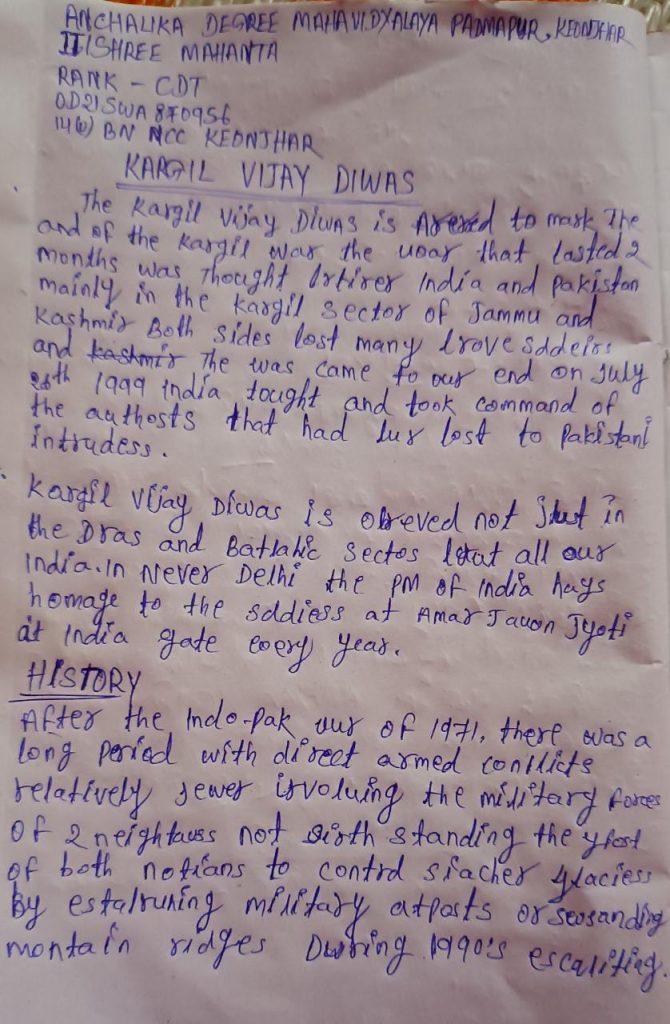 ANCHALIKA DEGREE MAHAVIDYALAYA PADMAPUR, KEONJHAR
ITISHREE MAHANTA
RANK - CDT
OD21SWA870956
14(O) BN NCC KEONJHAR
KARGIL VIJAY DIWAS
The Kargil Vijay Diwas is to mark The
and of the Kargil war the uoar that lasted 2
months was Thought India and pakistan
mainly in the kargil sector of Jammu and
Kashmir Both sides lost many lrove sddeirs
and kashmir The was came to our end on July
26th 1999 india tought and took command of
the authosts that had lur lost to Pakistani
intrudess.
Kargil Vijay Diwas is obreved not just in
the Dras and Batlalic sectos all our
India. in Never Delhi the PM of India hays
homage to the sddiess at Amar Jauon Jyoti
at India gate eoery year.
HISTORY
After the Indo-pak uur of 1971, there was a
long period with direct armed conllicts
relatively jewer isvoluing the military forces
of 2 neightauss not standing the
of both notians to contrd siacher glaciess
By estalruning military atposts or seosanding
montain ridges During 1990's escaliting.